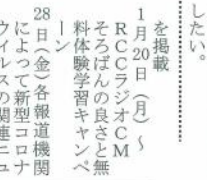 したい。
を掲載
1月20日(月)~
RCCラジオCM
そろばんの良さと無
料体験学習キャンペ
ーン
28日(金)各報道機関
によって新型コロナ
ウィルスの関連ニュ